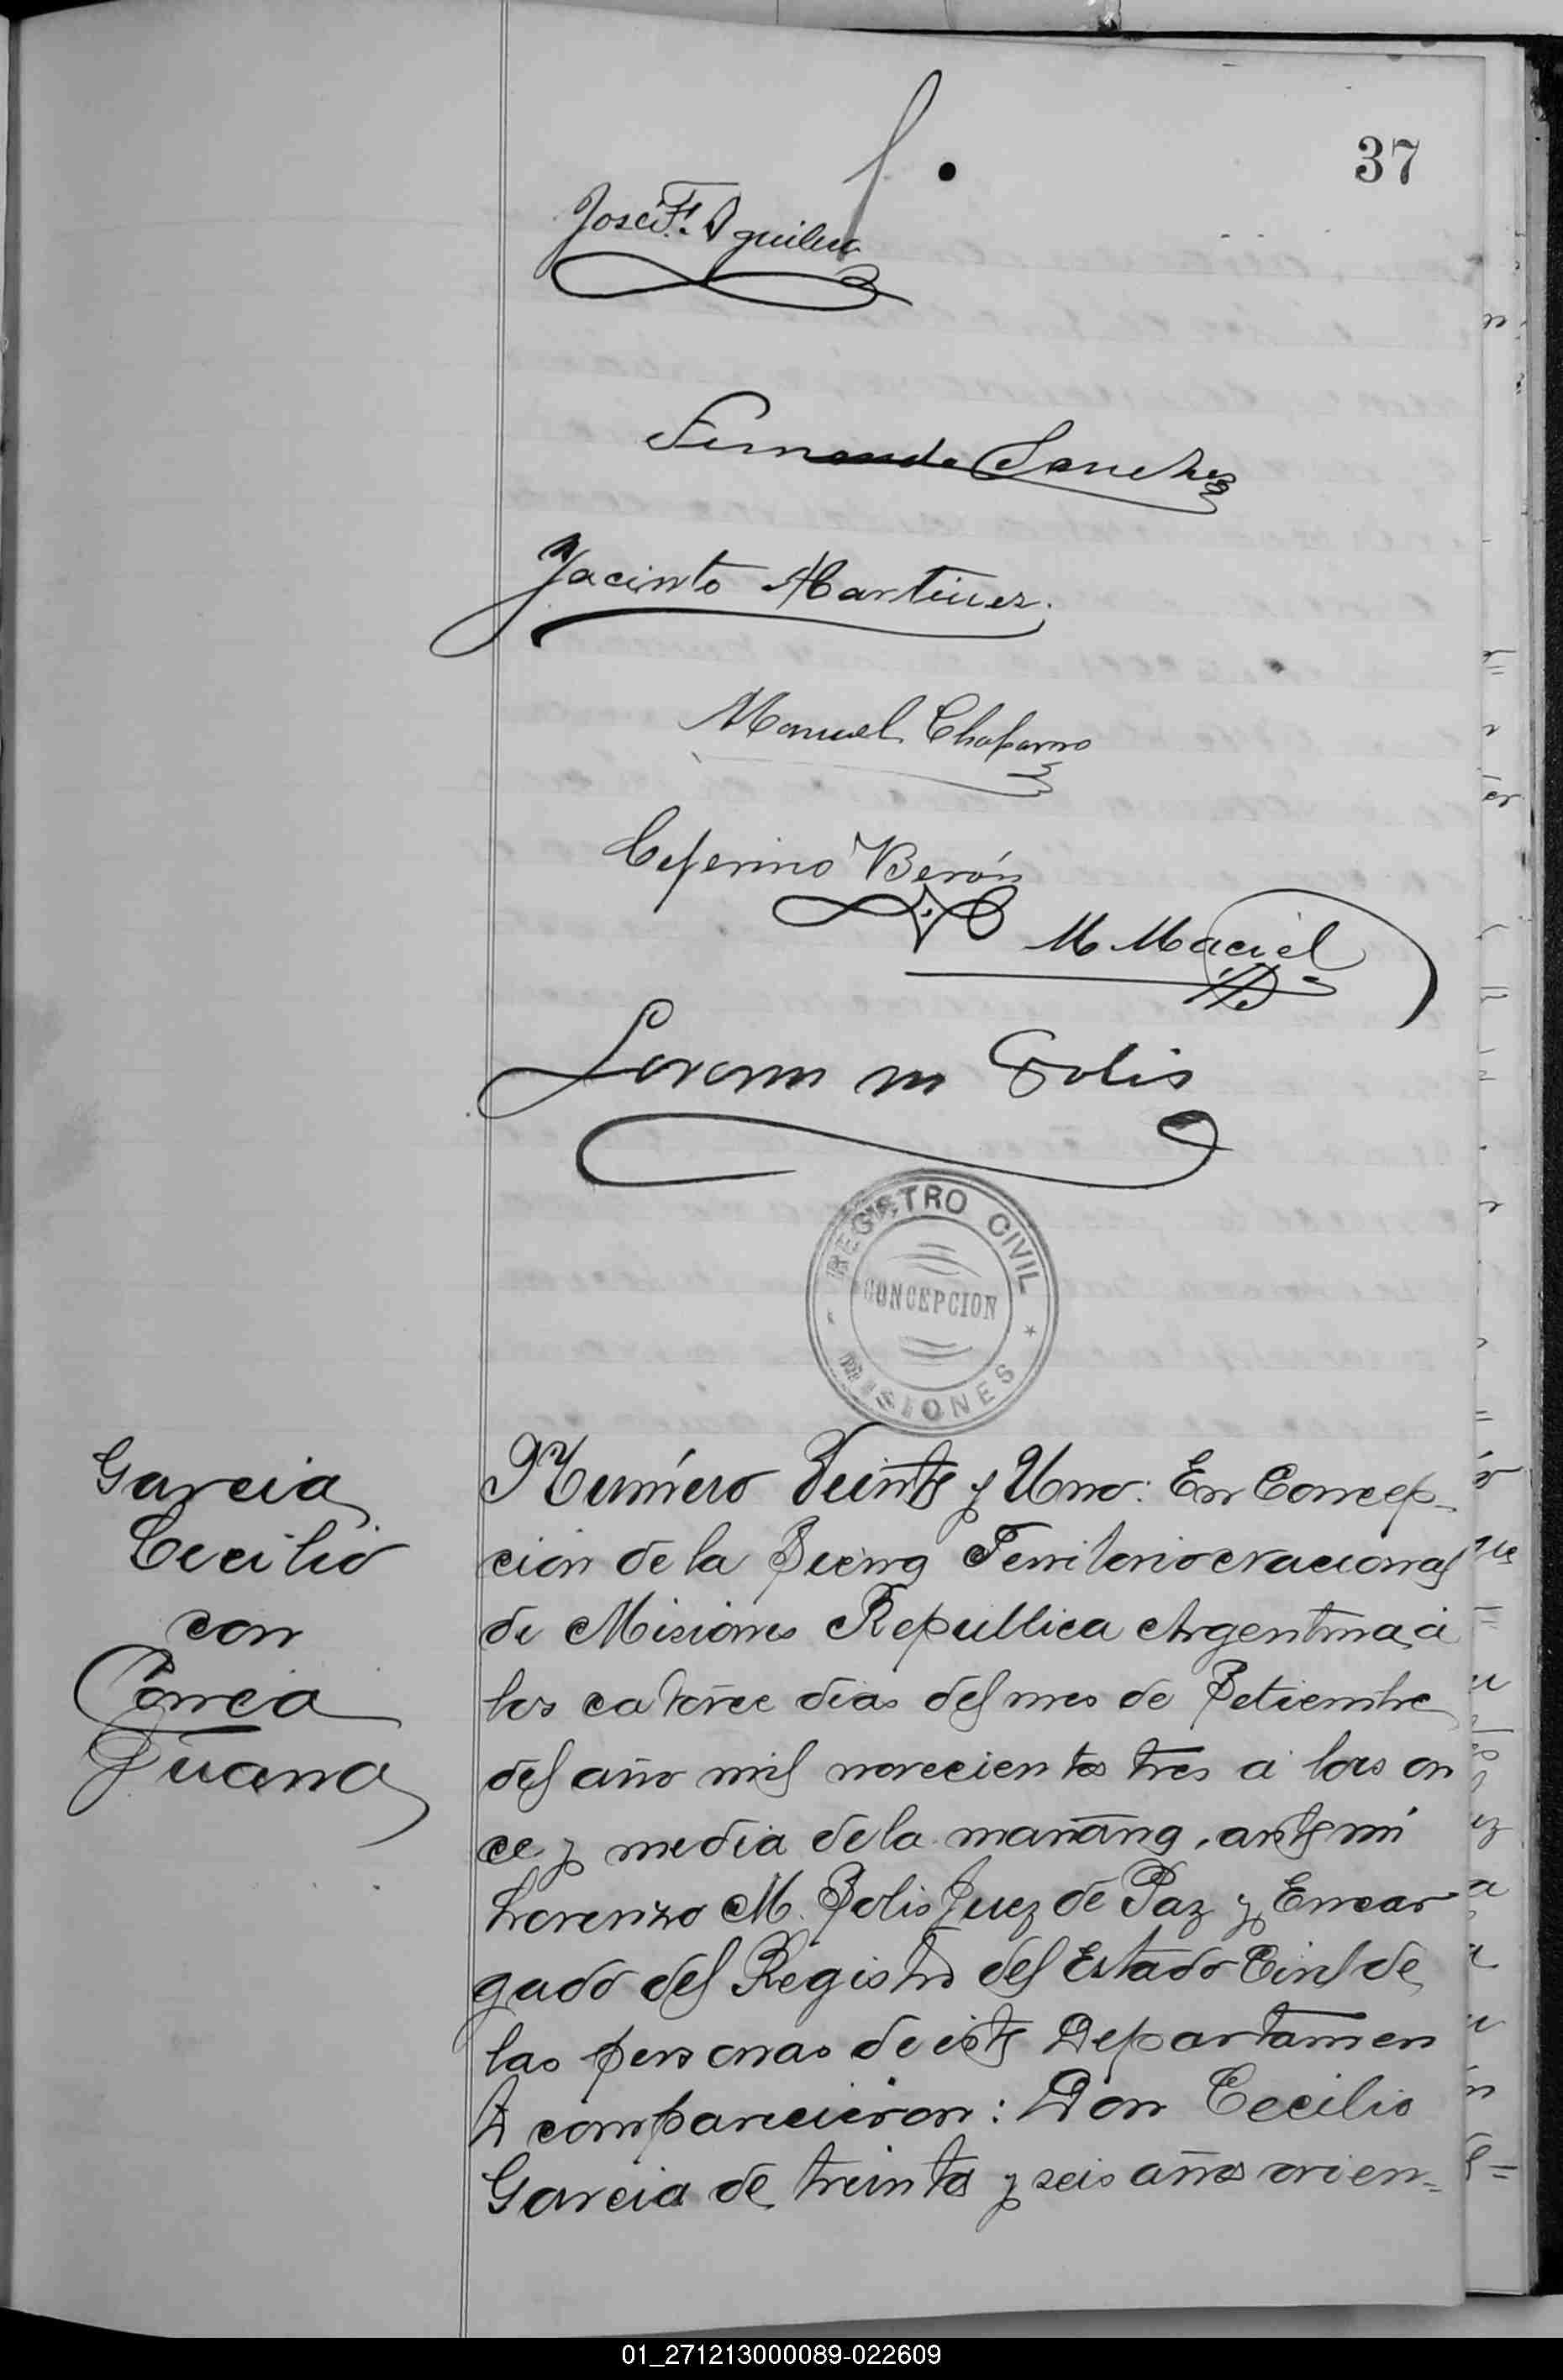 37
José F. Aguilera
Fernando Sanchez
Jacinto Martinez.
Manuel Chaparro
Ceferino Verón
M Maciel
Lorenzo M Solis
REGISTRO CIVIL
CONCEPCION
MISIONES
Garcia
Cecilio
con
Correa
Juana
Número Veinte y Uno: En Concep-
ción de la Sierra Territorio Nacional
de Misiones Republica Argentina, á
los catorce dias del mes de Setiembre
del año mil novecientos tres á las on
ce y media de la mañana, ante mí
Lorenzo M. Solis Juez de Paz y Encar
gado del Registro del Estado Civil de
las personas de este Departamen
to comparecieron: Don Cecilio
Garcia de treinta y seis años orien-
01_271213000089-022609